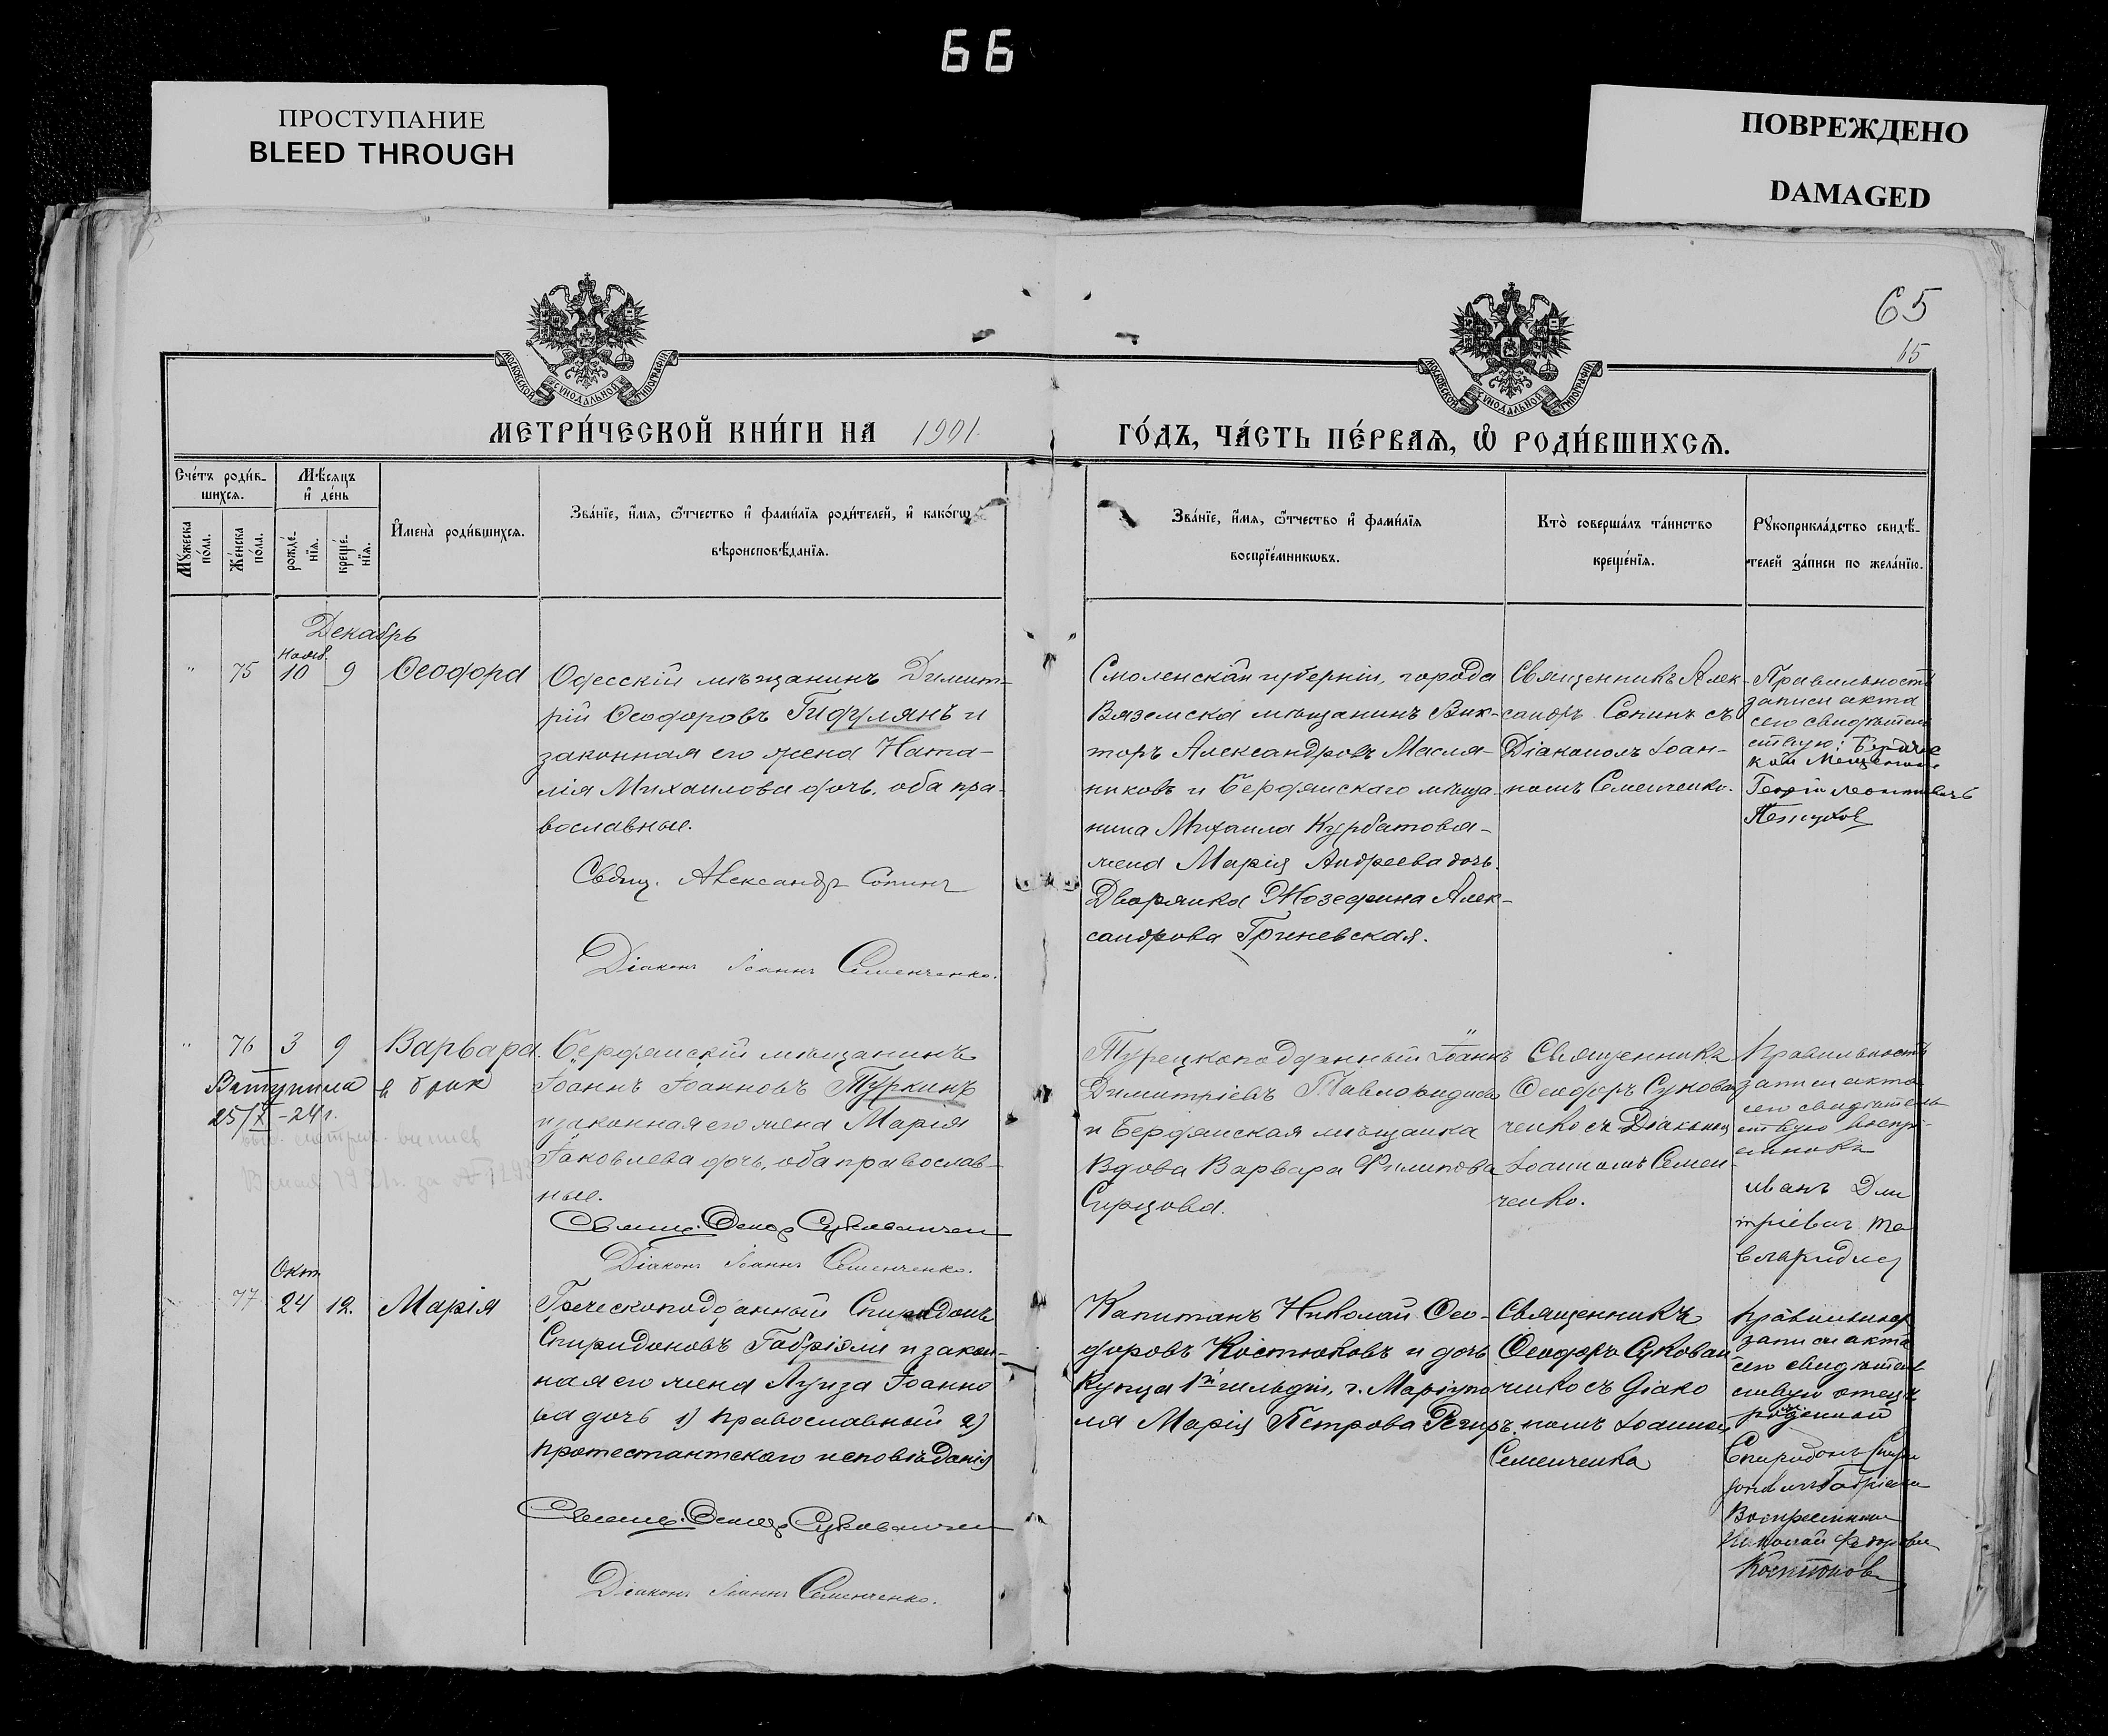 66
ПРОСТУПАНИЕ
BLEED THROUGH
ПОВРЕЖДЕНО
DAMAGED
65
65
МОСКОВСКОЙ СѴНОДАЛЬНОЙ ТИПОГРАФІИ
МОСКОВСКОЙ СѴНОДАЛЬНОЙ ТИПОГРАФІИ
МЕТРИ́ЧЕСКОЙ КНИ́ГИ НА 1901
ГО́ДЪ, ЧА́СТЬ ПЕ́РВАѦ, Ѽ РОДИ́ВШИХСѦ.
Сче́тъ роди́в-
шихсѧ.
Мꙋ́жеска по́ла.
Же́нска по́ла.
Мѣ́сѧцъ
и҆ де́нь
рожде́-нїѧ.
креще́-нїѧ.
И҆мена̀ роди́вшихсѧ.
Зва́нїе, и҆́мѧ, ѻ҆́тчество и҆ фами́лїѧ роди́телей, и҆ како́гѡ
вѣроисповѣ́данїѧ.
Зва́нїе, и҆́мѧ, ѻ҆́тчество и҆ фами́лїѧ
воспрїе́мникѡвъ.
Кто̀ соверша́лъ та́инство
креще́нїѧ.
Рꙋкоприкла́дство свидѣ́-
телей за́писи по жела́нїю.
Декабрь
Нояб.
" 75 10 9 Ѳеодора
Одесскій мѣщанинъ Димит-
рій Ѳеодоровъ Гидулянъ и
законная его жена Ната-
лія Михаилова дочь, оба пра-
вославные.
Свящ. Александр Сопинъ
Діаконъ Іоаннъ Семенченко.
Смоленской губерніи, города
Вяземска мѣщанинъ Вик-
торъ Александровъ Масля-
никовъ и Бердянскаго мѣща-
нина Михаила Курбатова-
жена Марія Андреева дочь.
Дворянка Жозефина Алек-
сандрова Гриневская.
Священникъ Алек-
сандръ Сопинъ съ
Діакономъ Іоан-
номъ Семенченко.
Правильность
записи акта
сего свидѣтель
ствую:
Георгій Леонтьевичъ
" 76 3 9 Варвара.
Вступила в брак
25/X - 24 г.
Бердянскій мѣщанинъ
Іоаннъ Іоанновъ Туркинъ
и законная его жена Марія
Іаковлева дочь, оба православ-
ные.
Священ. Ѳеодор Сукованченко
Діаконъ Іоаннъ Семенченко.
Турецкоподданный Іоаннъ
Димитріевъ Павловидисъ
и Бердянская мѣщанка
Вдова Варвара Филипова
Сирцова.
Священникъ
Ѳеодоръ Сукован
ченко съ Діакономъ
Іоанномъ Семен-
ченко.
Правильность
записи акта
сего свидѣтель
ствую воспр-
емникъ
Иванъ Дми
тріевич
Окт.
77 24 12. Марія
Греческоподданный Спиридонъ
Спиридоновъ Габріяли и закон-
ная его жена Луиза Іоанно
ва дочь 1) православный 2)
протестантскаго исповѣданія
Священ. Ѳеодор Сукованченко
Діаконъ Іоаннъ Семенченко.
Капитанъ Николай Ѳео-
доровъ Костюковъ и дочь
Купца 1й гильдіи, г. Маріупо
ля Марія Петрова Региръ.
Священникъ
Ѳеодоръ Сукован
ченко съ Діако
номъ Іоанномъ
Семенченко
Правильность
записи акта
сего свидѣтель
ствую отецъ
рожденной
Спиридонъ Спири
доновичъ Габріели
Воспреемникъ
Николай Федоровичъ
Костюковъ